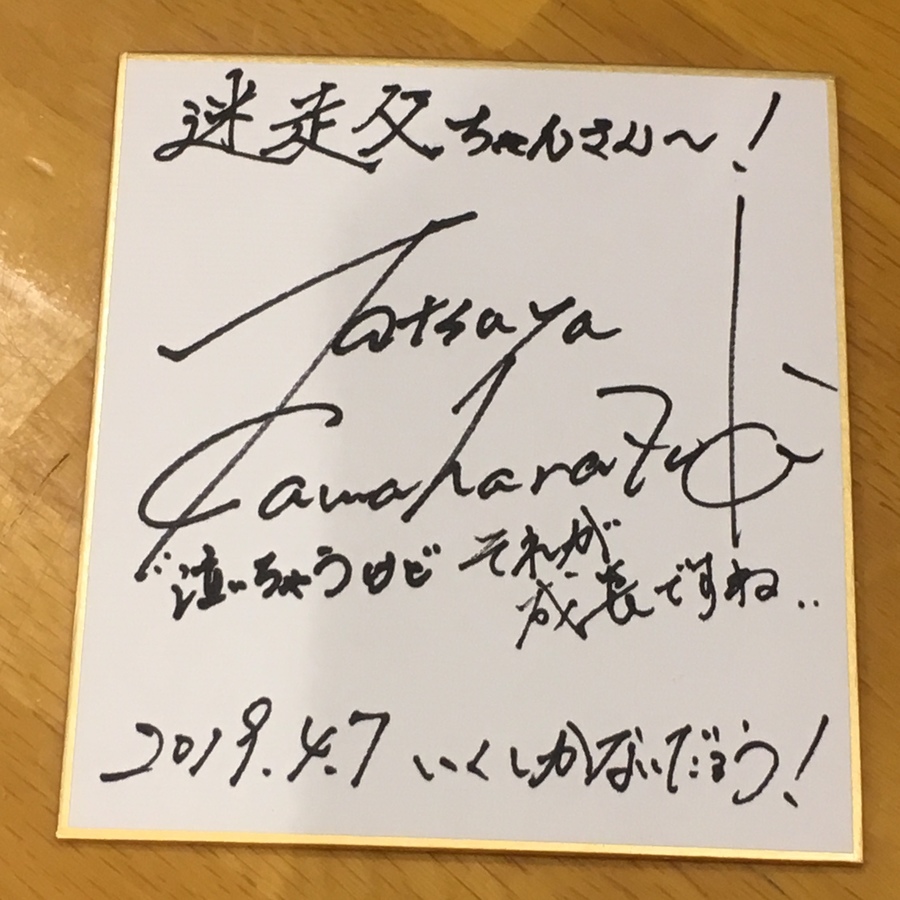 迷走父ちゃんさん〜!
Tatsuya
Kawahara
"泣いちゃうけど それが
成長ですね..
2019.4.7 いくしかないだろう!